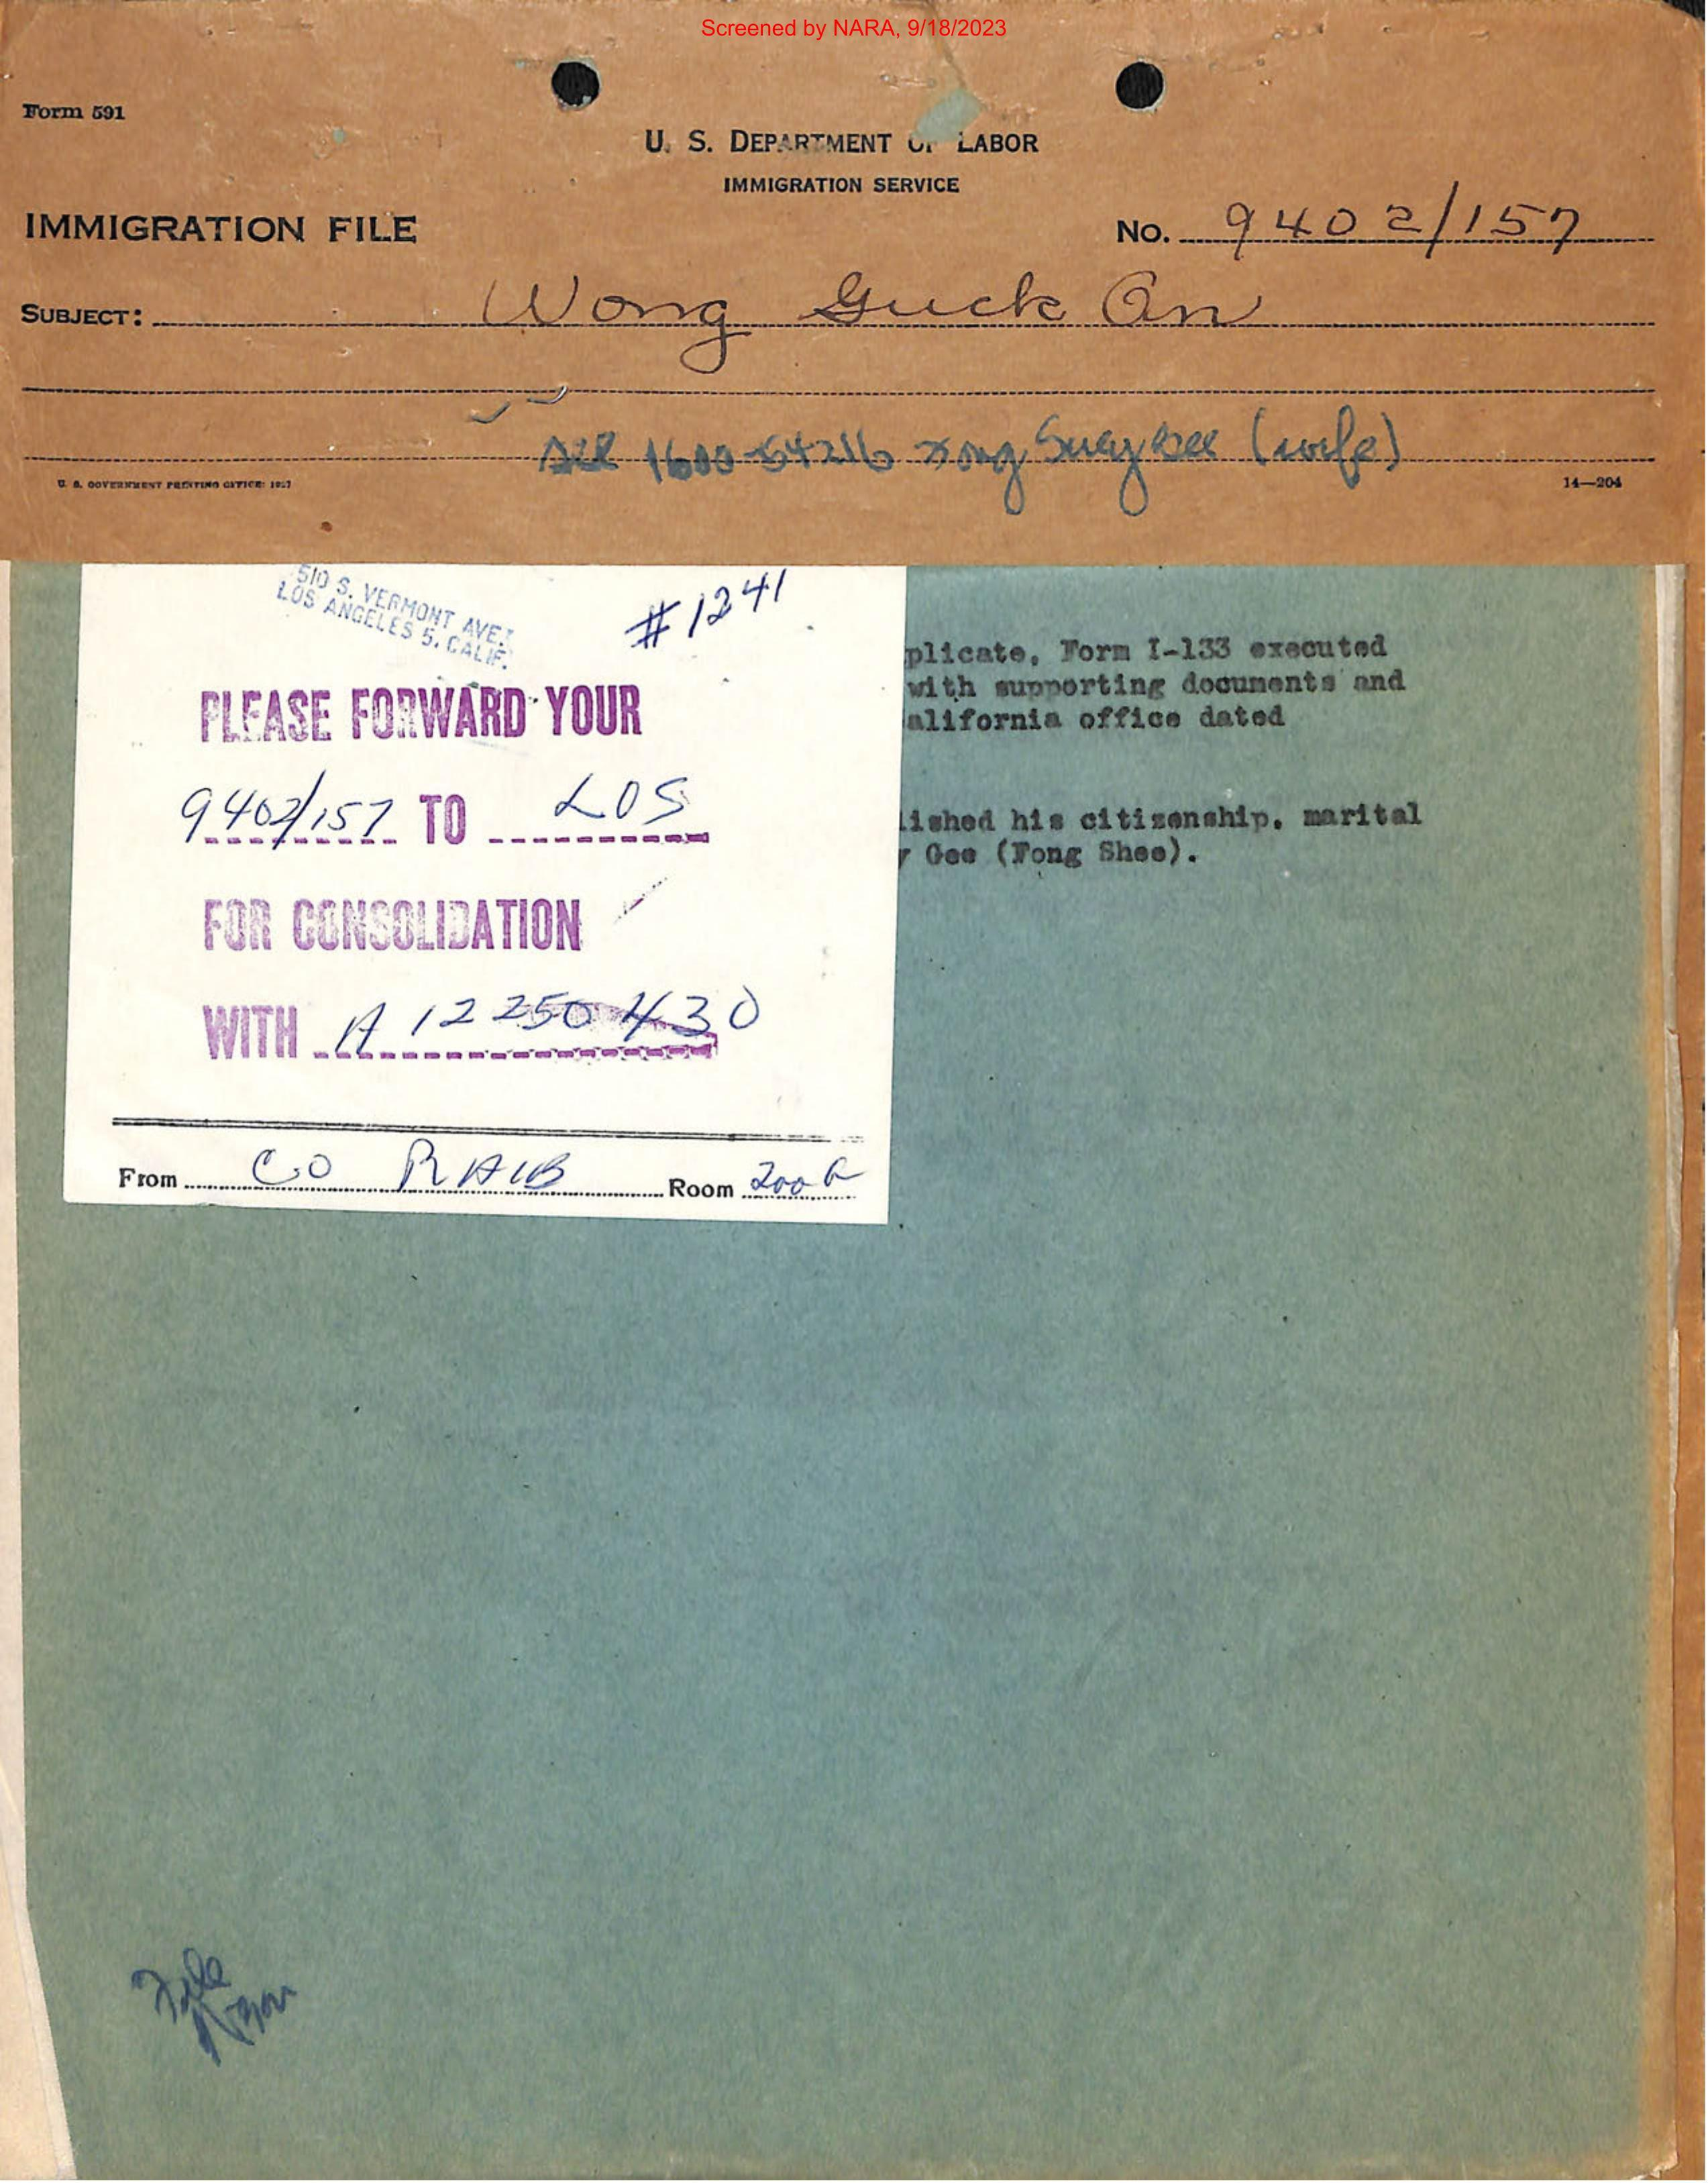 Screened by NARA, 9/18/2023
Form 591
U. S. DEPARTMENT OF LABOR
IMMIGRATION SERVICE
IMMIGRATION FILE
No. 9402/157
SUBJECT: Wong Guck On
1600-54216 Fong Suey Gee (wife)
U. S. GOVERNMENT PRINTING OFFICE: 1937
14—204
510 S. VERMONT AVE.
LOS ANGELES 5, CALIF.
#1241
PLEASE FORWARD YOUR
9402/157 TO LOS
FOR CONSOLIDATION
WITH A 12 250 430
From CO RAIB Room 200 R
plicate, Form I-133 executed
with supporting documents and
alifornia office dated
lished his citizenship, marital
y Gee (Fong Shee).
File